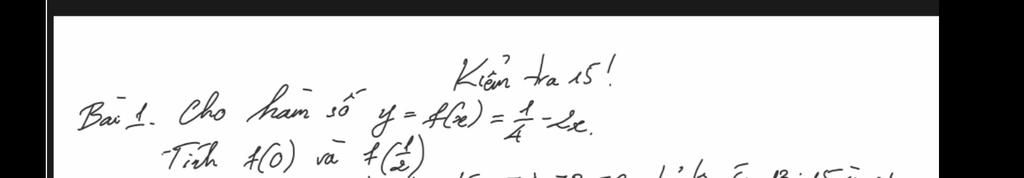 Kiểm tra 15'
Bài 1. Cho hàm số y = f(x) = 1/4 - 2x.
Tính f(0) và f(1/2)